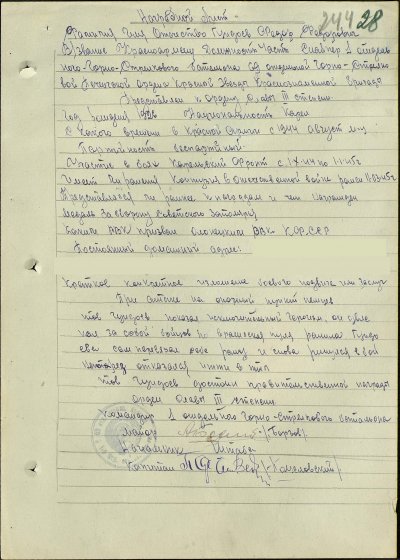 244 28
Наградной лист
Фамилия Имя Отчество Гундоев Федор Федорович
Звание Красноармеец Должность Часть Снайпер 1 отдель
ного Горно-Стрелкового батальона отдельной Горно-Стрелко
вой Ордена Красной Звезды Краснознаменной Бригады
Представлен к Ордену Славы III степени
Год рождения 1926 Национальность Карел
С какого времени в Красной Армии с 1944 август м-ц
Партийность беспартийный
Участие в боях Карельский Фронт с
Имеет ли ранения Контузии в Отечественной войне ранен
Представлялся ли раннее к наградам и чем награжден
медаль За оборону Советского Заполярья
Каким РВК призван РВК КФССР
Постоянный домашний адрес:
Краткое конкретное изложение боевого подвига или заслуг
При атаке на опорный пункт немцев
тов Гундоев показал исключительный героизм, он увле
кал за собой бойцов но вражеская пуля ранила. Гундо
ев сам перевязал себе рану и снова ринулся в бой
отказался идти в тыл
тов Гундоев достоин правительственной награды
орден Славы III степени
Командир 1 отдельного Горно-Стрелкового батальона
майор
Начальник Штаба
Капитан